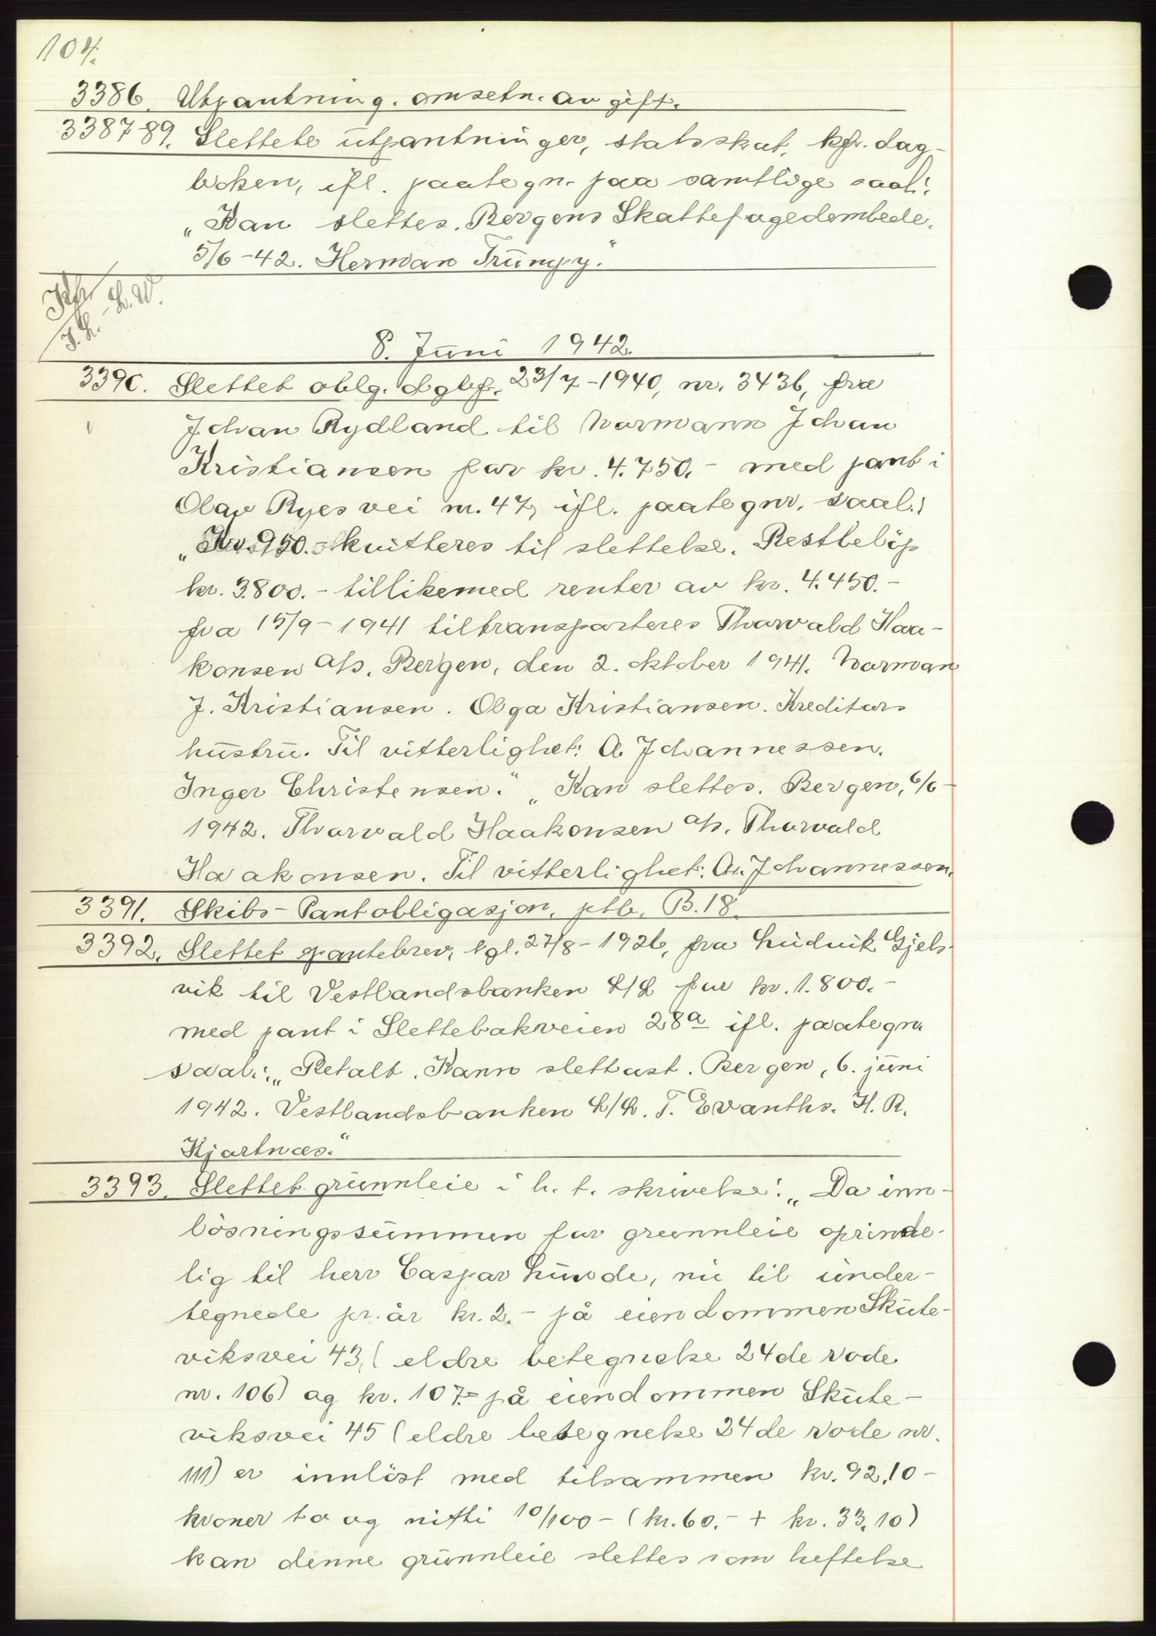 104.
3386. Utpantning. omsetn. avgift.
3387-89. Slettete utpantninger, statsskat, kfr. dag-
boken, ifl. paategn. paa samtlige saal.:
„Kan slettes. Bergens Skattefogedembede.
5/6-42. Herman Trumpy."
8. Juni 1942.
3390. Slettet oblg. dglgf. 23/7-1940, nr. 3436, fra
Johan Rydland til Normann Johan
Kristiansen for kr. 4.750.- med pant i
Olav Ryes vei nr. 47, ifl. paategnr. saal.:
„Kr. 950.- kvitteres til slettelse. Restbeløp
kr. 3800.- tillikemed renter av kr. 4.450.-
fra 15/9-1941 tiltransporteres Thorvald Haa-
konsen a/s. Bergen, den 2. oktober 1941. Norman
J. Kristiansen. Olga Kristiansen. Kreditors
hustru. Til vitterlighet: A Johannessen.
Inger Christensen." „Kan slettes. Bergen, 6/6-
1942. Thorvald Haakonsen a/s. Thorvald
Haakonsen. Til vitterlighet: A. Johannessen.
3391. Skibs-Pantobligasjon, ptb. B.18.
3392. Slettet pantebrev, tgl. 27/8-1926, fra Ludvik Gjels-
vik til Vestlandsbanken L/L for kr. 1.800.-
med pant i Slettebakveien 28a ifl. paategn.
saal.: „Betalt. Kann slettast. Bergen, 6. juni
1942. Vestlandsbanken L/L. T. Evanths. H. R.
Kjartnæs."
3393. Slettet grunnleie i h. t. skrivelse: „Da inn-
løsningssummen for grunnleie oprinde-
lig til herr Caspar Lunde, nu til under-
tegnede pr. år kr. 2.- på eiendommen Skute-
viksvei 43, (eldre betegnelse 24de rode
nr. 106) og kr. 107.- på eiendommen Skute-
viksvei 45 (eldre betegnelse 24de rode nr.
111) er innløst med tilsammen kr. 92,10-
kroner to og nitti 10/100- (kr. 60.- + kr. 33,10)
kan denne grunnleie slettes som heftelse